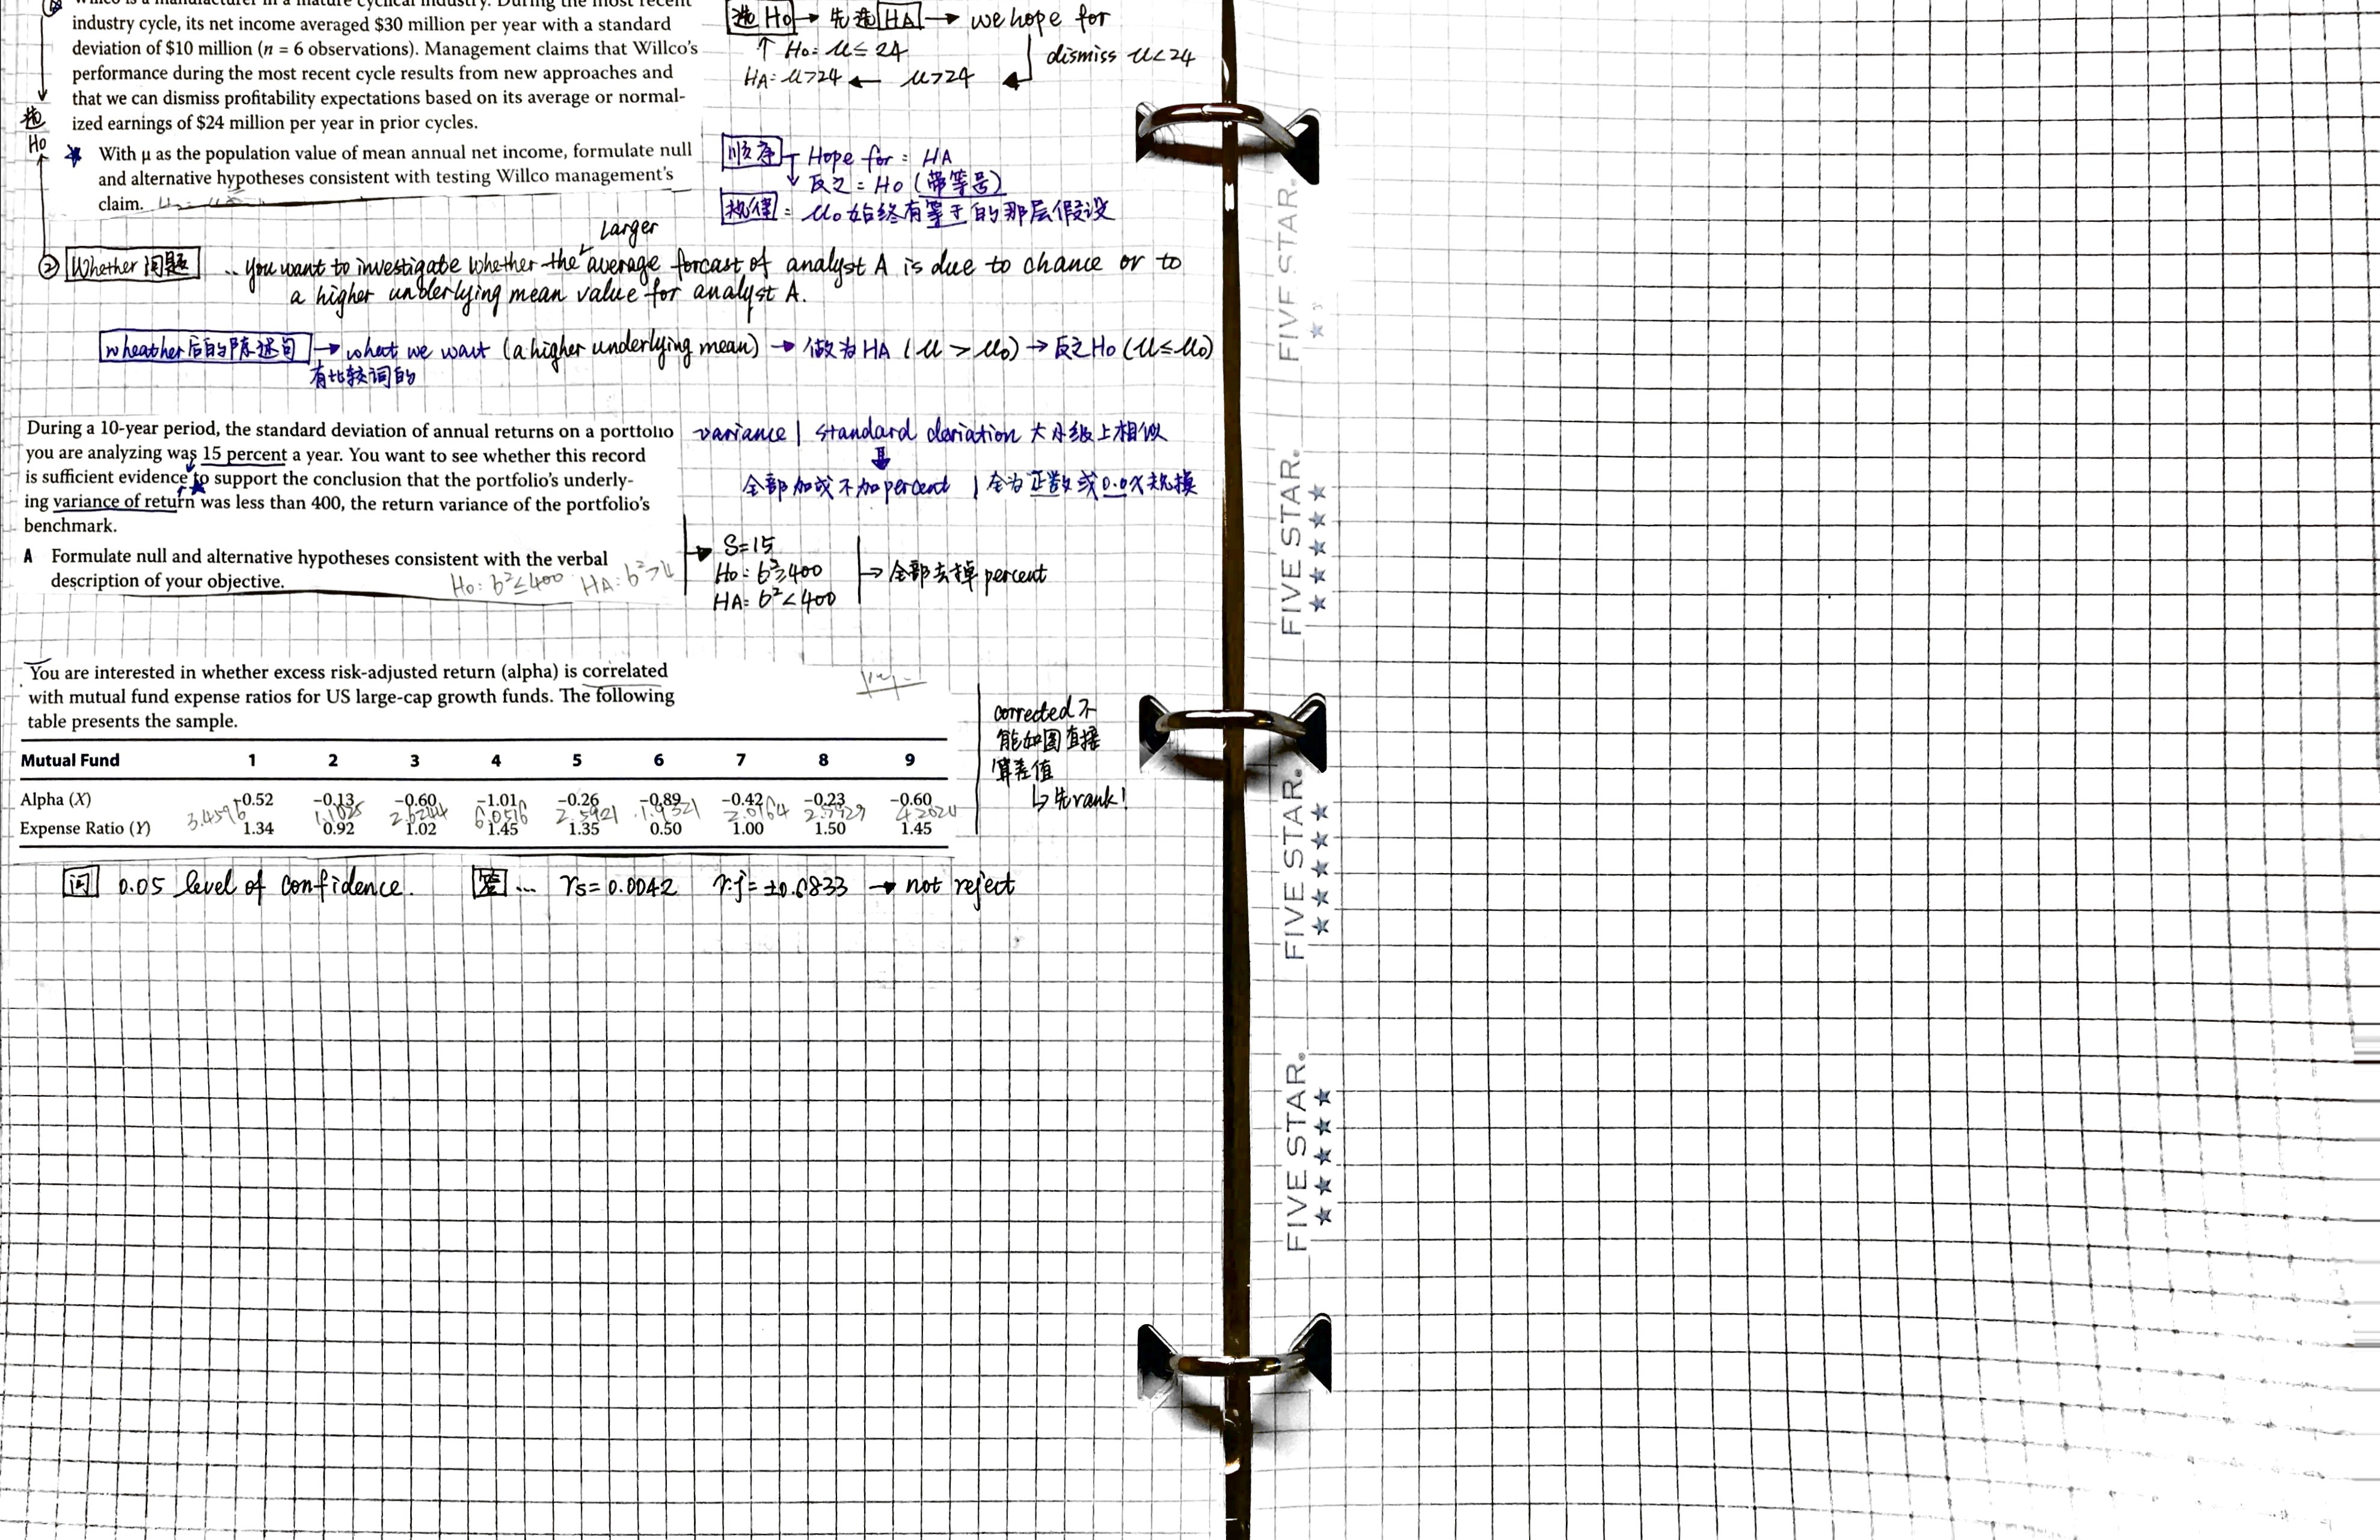 industry cycle, its net income averaged $30 million per year with a standard
deviation of $10 million (n = 6 observations). Management claims that Willco's
performance during the most recent cycle results from new approaches and
that we can dismiss profitability expectations based on its average or normal-
ized earnings of $24 million per year in prior cycles.
选
Ho
With μ as the population value of mean annual net income, formulate null
and alternative hypotheses consistent with testing Willco management's
claim.
选 Ho → 先选 HA → we hope for
↑ Ho: u ≤ 24
dismiss u<24
HA: u>24 ← u>24
顺序 Hope for: HA
反之: Ho (带等号)
规律: uo始终有等于的那层假设
Larger
② Whether 问题 .. you want to investigate whether the average forcast of analyst A is due to chance or to
a higher underlying mean value for analyst A.
wheather后的陈述句 → what we want (a higher underlying mean) → 做为HA (u > uo) → 反之Ho (u≤uo)
有比较词的
During a 10-year period, the standard deviation of annual returns on a portfolio
you are analyzing was 15 percent a year. You want to see whether this record
is sufficient evidence to support the conclusion that the portfolio's underly-
ing variance of return was less than 400, the return variance of the portfolio's
benchmark.
A Formulate null and alternative hypotheses consistent with the verbal
description of your objective. Ho: б²≤400 HA: б²>4
variance | standard dariation 大小级上相似
全部加或不加percent | 全为正数或0.0X
S=15
Ho: б²≥400
HA: б²<400
→ 全部去掉 percent
You are interested in whether excess risk-adjusted return (alpha) is correlated
with mutual fund expense ratios for US large-cap growth funds. The following
table presents the sample.
Mutual Fund 1 2 3 4 5 6 7 8 9
Alpha (X) −0.52 −0.13 −0.60 −1.01 −0.26 −0.89 −0.42 −0.23 −0.60
3.4596 1.1025 2.6244 6.0516 2.5921 1.9321 2.0164 2.9929 4.2024
Expense Ratio (Y) 1.34 0.92 1.02 1.45 1.35 0.50 1.00 1.50 1.45
corrected 不
能如图直接
算差值
↳先rank!
问 0.05 level of confidence. 答 ... rs=0.0042 r.j=±0.6833 → not reject
FIVE STAR.
FIVE STAR.
FIVE STAR.
FIVE STAR.